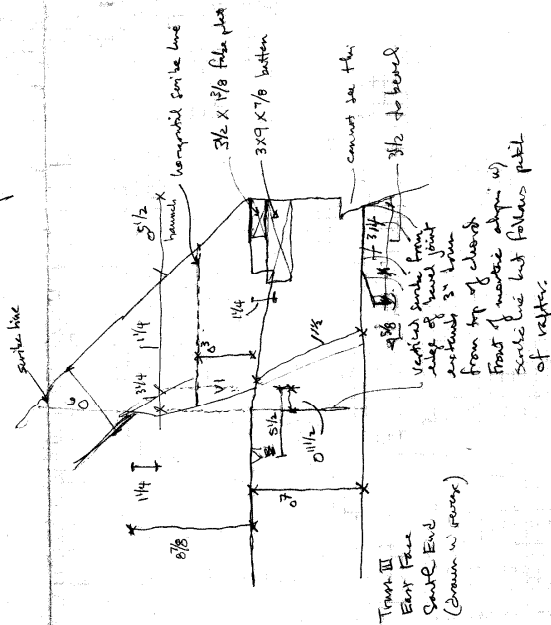 scribe line
horizontal scribe line
3 1/2 X 1 3/8 false plate
3X9 X 7/8 button
cannot see this
3 1/2 to bevel
5 1/2
haunch
1 1/4
3 1/4
6
0
3
VI
1 1/4
11 1/2
3 1/4
1 1/4
5 1/2
0 11 1/2
0 7
8 7/8
vertical scribe from
edge of bevel joint
extends 3" down
from top of chord
Front of mortise aligns w/
scribe line but follows pitch
of rafter.
Truss III
East Face
South End
(drawn in reverse)